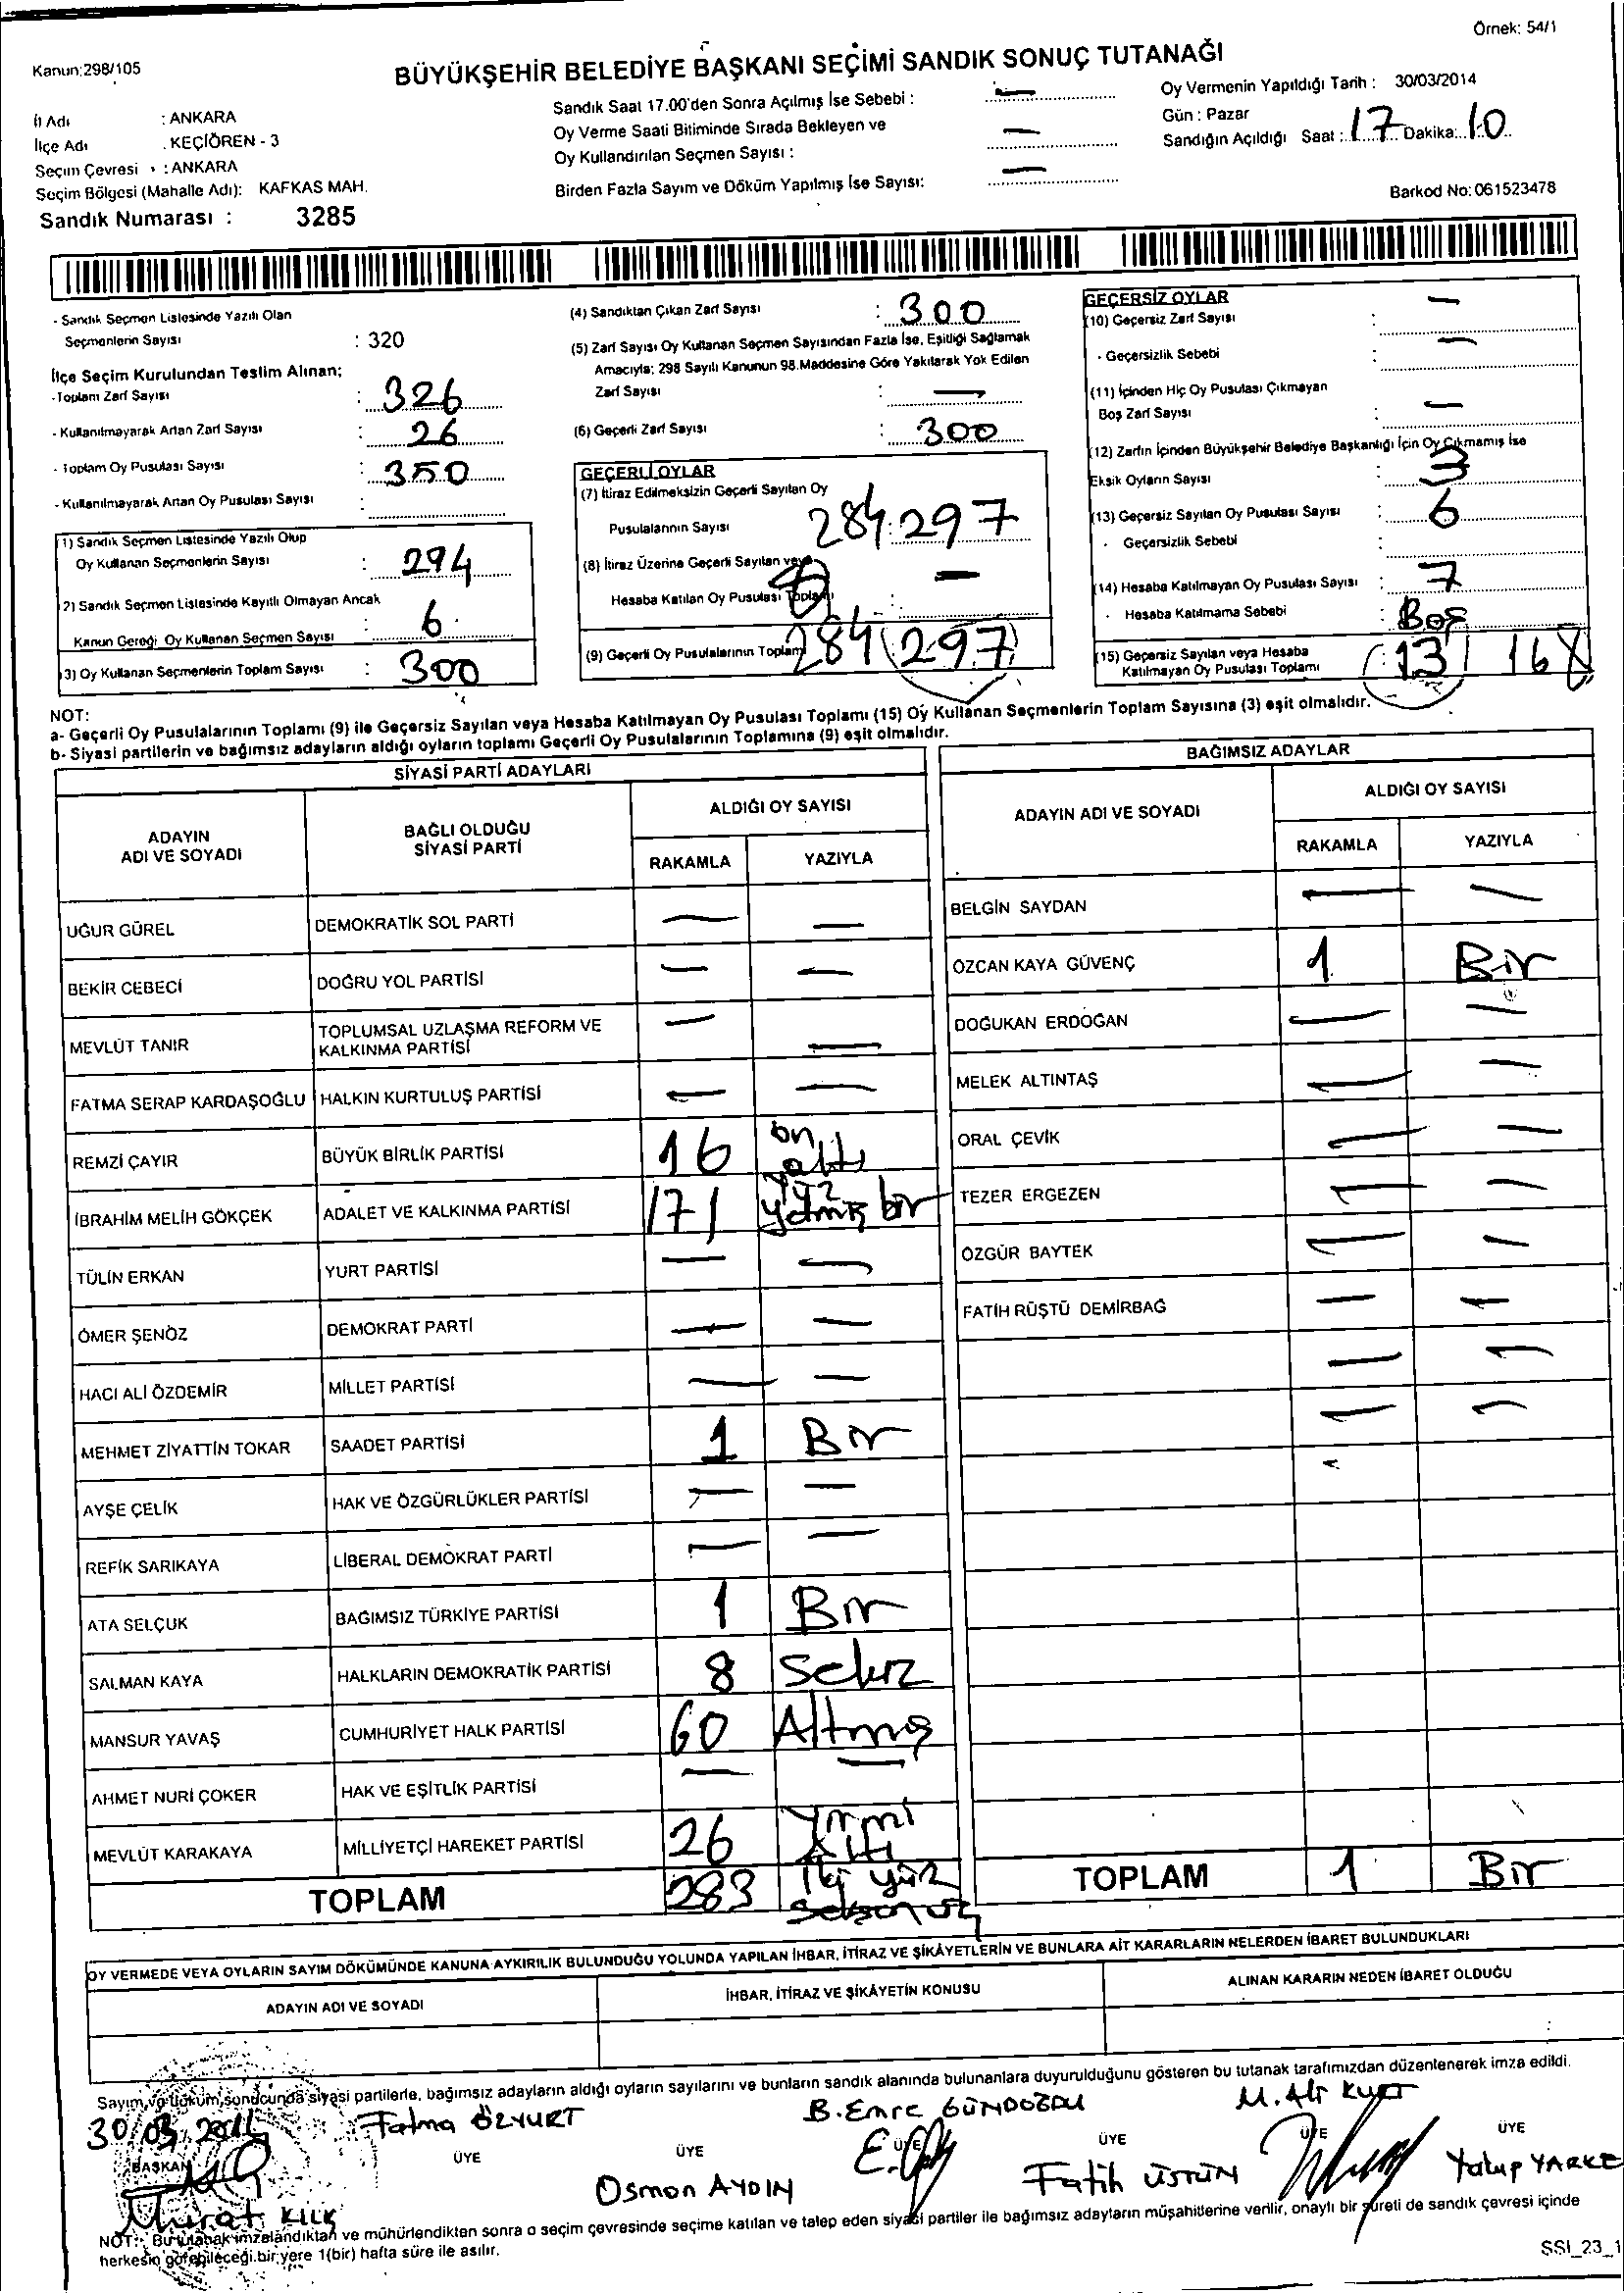 Örnek: 54/1
Kanun:298/105
BÜYÜKŞEHİR BELEDİYE BAŞKANI SEÇİMİ SANDIK SONUÇ TUTANAĞI
İl Adı : ANKARA
İlçe Adı : KEÇİÖREN - 3
Seçim Çevresi : ANKARA
Seçim Bölgesi (Mahalle Adı): KAFKAS MAH.
Sandık Numarası : 3285
Sandık Saat 17.00'den Sonra Açılmış İse Sebebi : —
Oy Verme Saati Bitiminde Sırada Bekleyen ve
Oy Kullandırılan Seçmen Sayısı : —
Birden Fazla Sayım ve Döküm Yapılmış İse Sayısı: —
Oy Vermenin Yapıldığı Tarih : 30/03/2014
Gün : Pazar
Sandığın Açıldığı Saat : 17 Dakika: 10
Barkod No: 061523478
- Sandık Seçmen Listesinde Yazılı Olan
Seçmenlerin Sayısı : 320
İlçe Seçim Kurulundan Teslim Alınan;
-Toplam Zarf Sayısı : 326
- Kullanılmayarak Artan Zarf Sayısı : 26
- Toplam Oy Pusulası Sayısı : 350
- Kullanılmayarak Artan Oy Pusulası Sayısı :
1) Sandık Seçmen Listesinde Yazılı Olup
Oy Kullanan Seçmenlerin Sayısı : 294
2) Sandık Seçmen Listesinde Kayıtlı Olmayan Ancak
Kanun Gereği Oy Kullanan Seçmen Sayısı : 6
3) Oy Kullanan Seçmenlerin Toplam Sayısı : 300
(4) Sandıktan Çıkan Zarf Sayısı : 300
(5) Zarf Sayısı Oy Kullanan Seçmen Sayısından Fazla İse, Eşitliği Sağlamak
Amacıyla; 298 Sayılı Kanunun 98.Maddesine Göre Yakılarak Yok Edilen
Zarf Sayısı : —
(6) Geçerli Zarf Sayısı : 300
GEÇERLİ OYLAR
(7) İtiraz Edilmeksizin Geçerli Sayılan Oy
Pusulalarının Sayısı 284 : 297
(8) İtiraz Üzerine Geçerli Sayılan veya
Hesaba Katılan Oy Pusulası Toplamı : —
(9) Geçerli Oy Pusulalarının Toplamı 284 297
GEÇERSİZ OYLAR
(10) Geçersiz Zarf Sayısı : —
- Geçersizlik Sebebi : —
(11) İçinden Hiç Oy Pusulası Çıkmayan
Boş Zarf Sayısı : —
(12) Zarfın İçinden Büyükşehir Belediye Başkanlığı İçin Oy Çıkmamış İse
Eksik Oyların Sayısı : 3
(13) Geçersiz Sayılan Oy Pusulası Sayısı : 6
- Geçersizlik Sebebi :
(14) Hesaba Katılmayan Oy Pusulası Sayısı : 7
- Hesaba Katılmama Sebebi : Boş
(15) Geçersiz Sayılan veya Hesaba
Katılmayan Oy Pusulası Toplamı : 13 16
NOT:
a- Geçerli Oy Pusulalarının Toplamı (9) ile Geçersiz Sayılan veya Hesaba Katılmayan Oy Pusulası Toplamı (15) Oy Kullanan Seçmenlerin Toplam Sayısına (3) eşit olmalıdır.
b- Siyasi partilerin ve bağımsız adayların aldığı oyların toplamı Geçerli Oy Pusulalarının Toplamına (9) eşit olmalıdır.
SİYASİ PARTİ ADAYLARI
ADAYIN ADI VE SOYADI
BAĞLI OLDUĞU SİYASİ PARTİ
ALDIĞI OY SAYISI
RAKAMLA YAZIYLA
UĞUR GÜREL DEMOKRATİK SOL PARTİ — —
BEKİR CEBECİ DOĞRU YOL PARTİSİ — —
MEVLÜT TANIR TOPLUMSAL UZLAŞMA REFORM VE KALKINMA PARTİSİ — —
FATMA SERAP KARDAŞOĞLU HALKIN KURTULUŞ PARTİSİ — —
REMZİ ÇAYIR BÜYÜK BİRLİK PARTİSİ 16 on altı
İBRAHİM MELİH GÖKÇEK ADALET VE KALKINMA PARTİSİ 171 yüz yetmiş bir
TÜLİN ERKAN YURT PARTİSİ — —
ÖMER ŞENÖZ DEMOKRAT PARTİ — —
HACI ALİ ÖZDEMİR MİLLET PARTİSİ — —
MEHMET ZİYATTİN TOKAR SAADET PARTİSİ 1 Bir
AYŞE ÇELİK HAK VE ÖZGÜRLÜKLER PARTİSİ — —
REFİK SARIKAYA LİBERAL DEMOKRAT PARTİ — —
ATA SELÇUK BAĞIMSIZ TÜRKİYE PARTİSİ 1 Bir
SALMAN KAYA HALKLARIN DEMOKRATİK PARTİSİ 8 Sekiz
MANSUR YAVAŞ CUMHURİYET HALK PARTİSİ 60 Altmış
AHMET NURİ ÇOKER HAK VE EŞİTLİK PARTİSİ — —
MEVLÜT KARAKAYA MİLLİYETÇİ HAREKET PARTİSİ 26 Yirmi Altı
TOPLAM 283 İki yüz seksen üç
BAĞIMSIZ ADAYLAR
ADAYIN ADI VE SOYADI
ALDIĞI OY SAYISI
RAKAMLA YAZIYLA
BELGİN SAYDAN — —
ÖZCAN KAYA GÜVENÇ 1 Bir
DOĞUKAN ERDOĞAN — —
MELEK ALTINTAŞ — —
ORAL ÇEVİK — —
TEZER ERGEZEN — —
ÖZGÜR BAYTEK — —
FATİH RÜŞTÜ DEMİRBAĞ — —
— —
— —
TOPLAM 1 Bir
OY VERMEDE VEYA OYLARIN SAYIM DÖKÜMÜNDE KANUNA AYKIRILIK BULUNDUĞU YOLUNDA YAPILAN İHBAR, İTİRAZ VE ŞİKÂYETLERİN VE BUNLARA AİT KARARLARIN NELERDEN İBARET BULUNDUKLARI
ADAYIN ADI VE SOYADI
İHBAR, İTİRAZ VE ŞİKÂYETİN KONUSU
ALINAN KARARIN NEDEN İBARET OLDUĞU
Sayım ve döküm sonucunda siyasi partilerle, bağımsız adayların aldığı oyların sayılarını ve bunların sandık alanında bulunanlara duyurulduğunu gösteren bu tutanak tarafımızdan düzenlenerek imza edildi.
30/03/2014 Fatma ÖZYURT B. Emre GÜNDOĞDU M. Ali KURT
BAŞKAN ÜYE ÜYE ÜYE ÜYE ÜYE ÜYE
Murat KILIÇ Osman AYDIN Fatih ÜSTÜN Yakup YARKE
NOT: Bu tutanak imzalandıktan ve mühürlendikten sonra o seçim çevresinde seçime katılan ve talep eden siyasi partiler ile bağımsız adayların müşahitlerine verilir, onaylı bir sureti de sandık çevresi içinde
herkesin görebileceği bir yere 1(bir) hafta süre ile asılır.
SSI_23_1